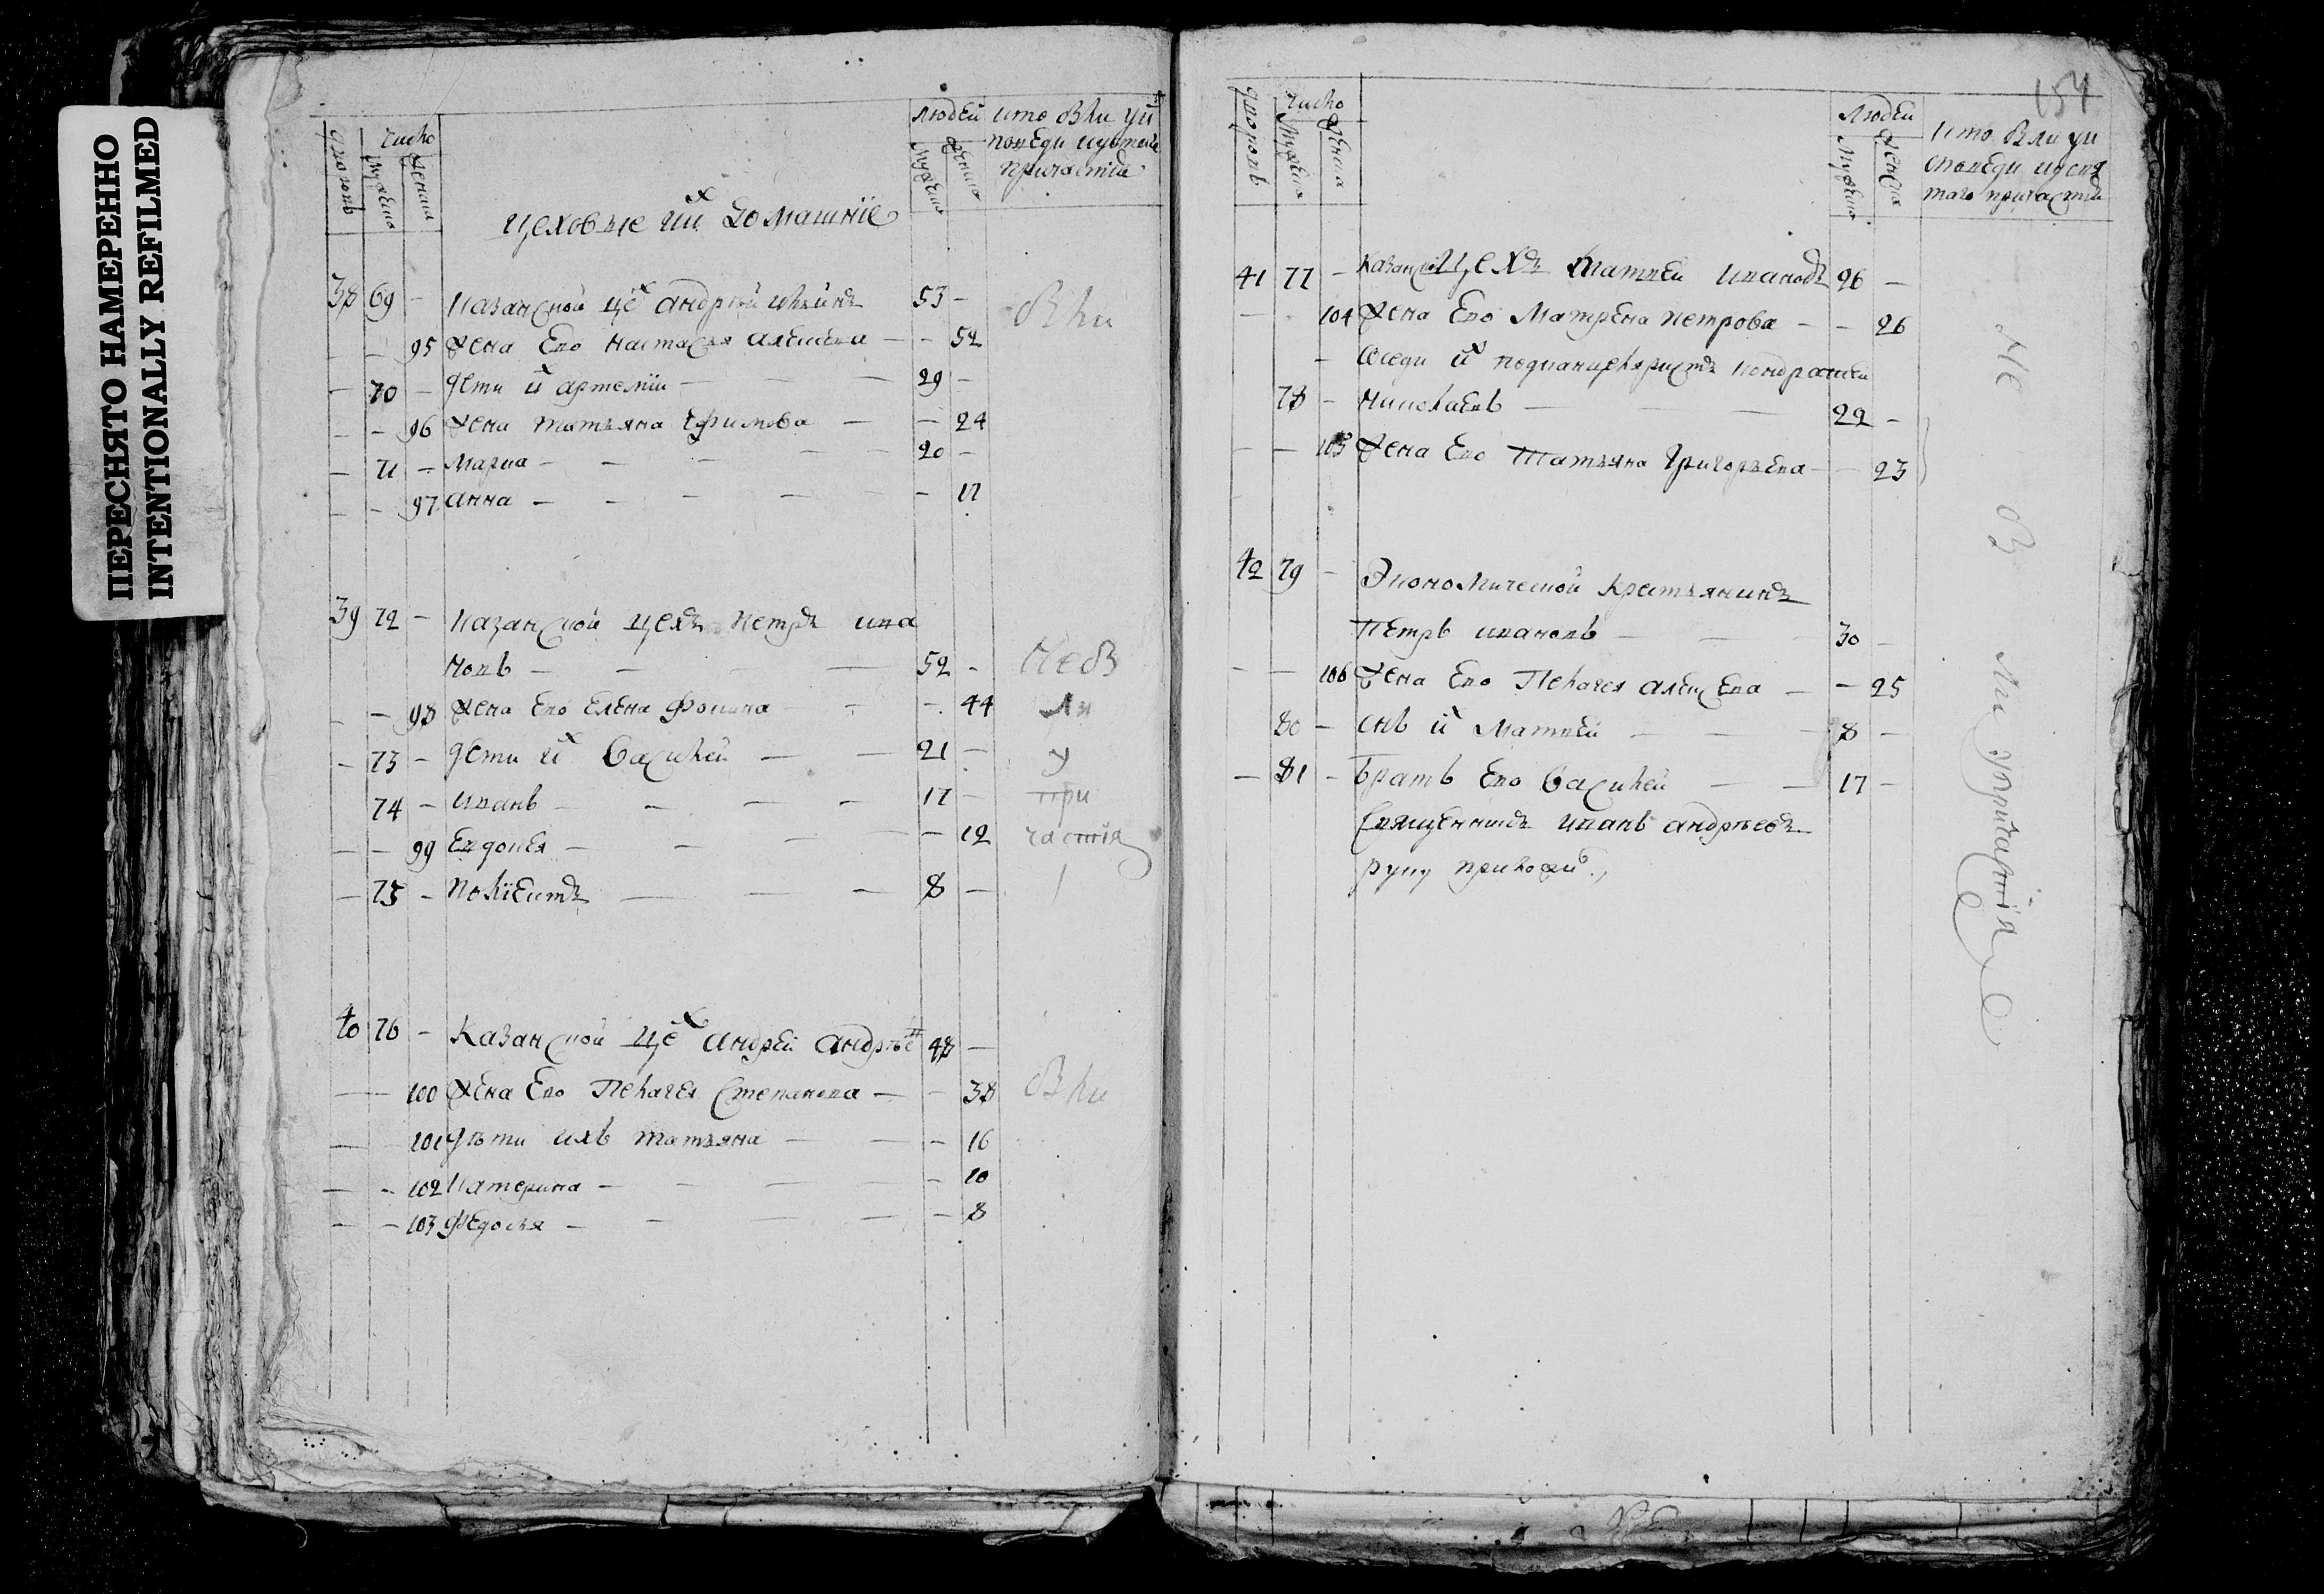 ПЕРЕСНЯТО НАМЕРЕННО
INTENTIONALLY REFILMED
дворовъ
Число
Мужеска
Женска
Людей
Мужеска
Женска
кто были у и
поведи и святаго
причастія
Цеховые и их домашніе
38 69 - Казанской цех Андрей 53 -
Были
- - 95 жена ево Настасья Алексеева - - 52
- 70 - дети их Артемій - - 29 -
- - 96 жена Татьяна Ефимова - - 24
- 71 - Марка - - - 20 -
- - 97 анна - - - - 17
39 72 - Казанской цехъ Петръ Ива
новъ - - - 52 -
Не б
- - 98 жена ево Елена Фомина - - 44
ли
- 73 - дети их Василей - - 21 -
у
74 - Иванъ - - - 17 -
при
- - 99 Евдокея - - - - 12
частія
- 75 - Полиектъ - - - 8 -
40 76 - Казанской цех Андрей Андрѣе 48 -
- - 100 жена ево Пелагея Степанова - - 38
Были
- 101 дѣти ихъ татьяна - - - 16
- - 102 Катерина - - - - 10
- - 103 Федосья - - - - 8
154
дворовъ
Число
Мужеска
Женска
Людей
Мужеска
Женска
кто были у и
споведи и свя
таго причастія
41 77 - Казанской цехъ Матвей Ивановъ 26 -
- 104 жена ево Матрена Петрова - - 26
- Соседи их подканцеляристъ Кондратей
78 - Николаевъ - - - 22 -
- - 105 жена ево Татьяна Григорьева - - 23
42 79 - Экономической крестьянинъ
Петръ Ивановъ - - 30 -
- - 106 жена ево Пелагея Алексеева - - 25
80 - снъ их Матвей - - - 8 -
- 81 - Братъ ево Василей - - 17 -
Священникъ Иванъ Андрѣевъ
руку приложи
Не б ли у причастія